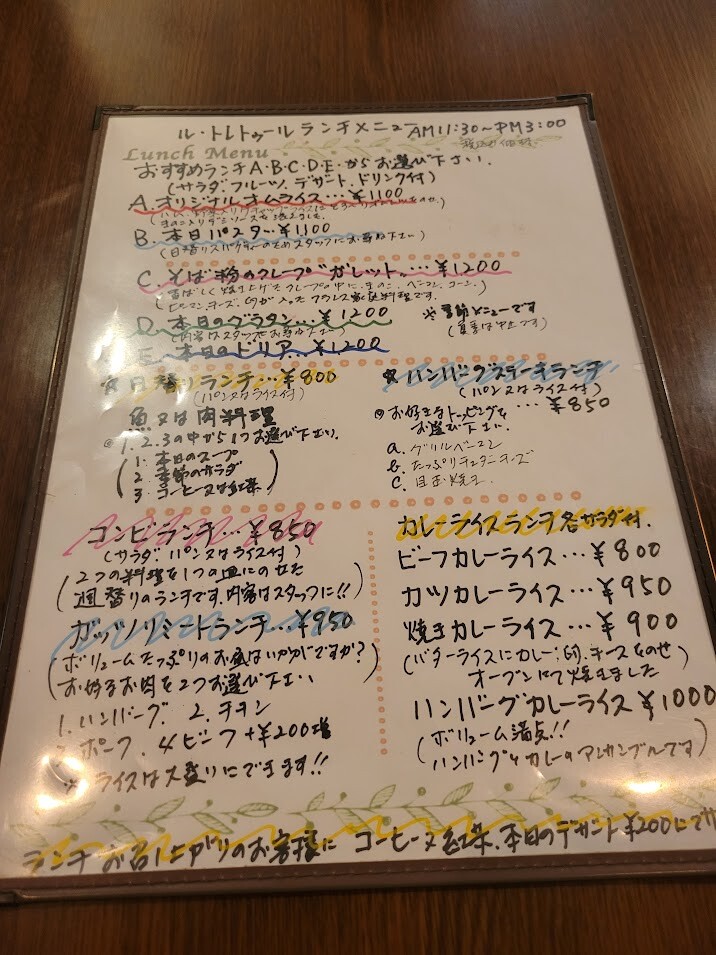 ル・トレトゥール ランチメニュー AM11:30〜PM3:00
Lunch Menu
おすすめランチA・B・C・D・E・からお選び下さい.
(サラダ、フルーツ、デザート、ドリンク付)
A. オリジナルオムライス…¥1100
B. 本日パスタ…¥1100
(日替りスパゲティーのためスタッフにお尋ね下さい)
C. そば粉のクレープ“ガレット”…¥1200
香ばしく焼き上げたクレープの中に、きのこ、ベーコン、コーン、
ピーマン、チーズ、卵が入ったフランス家庭料理です.
D. 本日のグラタン…¥1200
(内容はスタッフにお尋ね下さい)
※季節メニューです
(夏季は中止です)
E. 本日のドリア…¥1,200
☆日替りランチ…¥800
(パン又はライス付)
魚又は肉料理
◎1.2.3の中から1つお選び下さい.
1. 本日のスープ
2. 季節のサラダ
3. コーヒー又は紅茶
☆ハンバーグステーキランチ
(パン又はライス付)
…¥850
◎お好きなトッピングを
お選び下さい.
a. グリルベーコン
b. たっぷりチェダーチーズ
c. 目玉焼き
コンビランチ…¥850
(サラダ、パン又はライス付)
(2つの料理を1つの皿にのせた
週替りのランチです。内容はスタッフに!!)
ガッツリミートランチ…¥950
(ボリュームたっぷりのお皿はいかがですか?)
お好きなお肉を2つお選び下さい
1. ハンバーグ 2. チキン
3. ポーク. 4 ビーフ+¥200増
※ライスは大盛りにできます!!
カレーライスランチ 各サラダ付.
ビーフカレーライス…¥800
カツカレーライス…¥950
焼きカレーライス…¥900
(バターライスにカレー、卵、チーズをのせ
オーブンにて焼きました)
ハンバーグカレーライス¥1000
(ボリューム満点!!
ハンバーグとカレーのアンサンブルです)
ランチお召し上がりのお客様に コーヒー又は紅茶、本日のデザート¥200にて